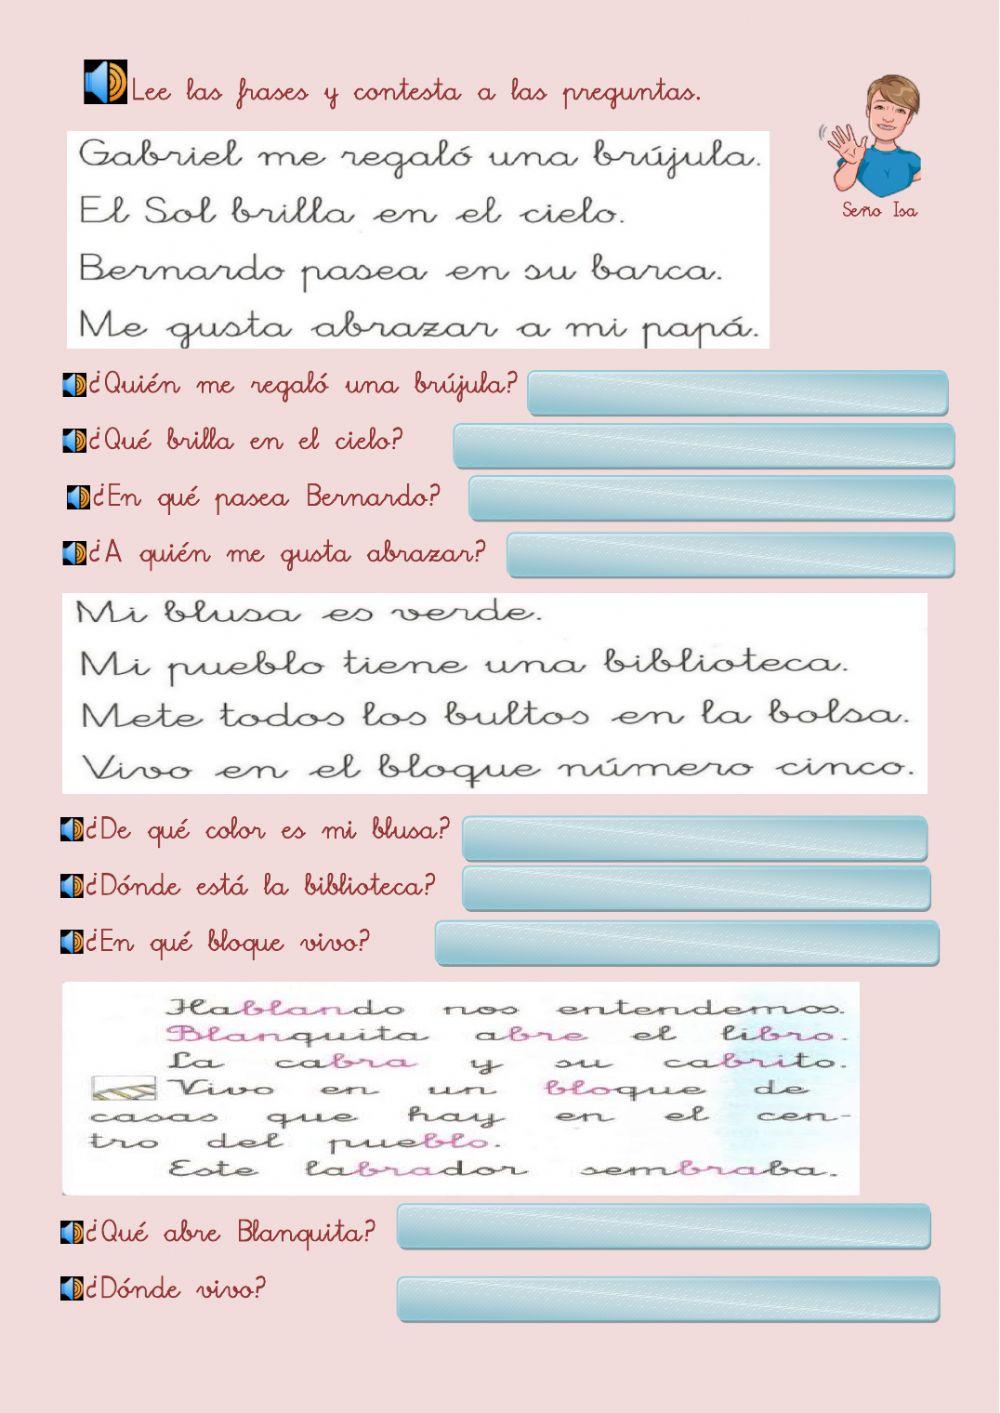 Lee las frases y contesta a las preguntas.
Seño Isa
Gabriel me regaló una brújula.
El Sol brilla en el cielo.
Bernardo pasea en su barca.
Me gusta abrazar a mi papá.
¿Quién me regaló una brújula?
¿Qué brilla en el cielo?
¿En qué pasea Bernardo?
¿A quién me gusta abrazar?
Mi blusa es verde.
Mi pueblo tiene una biblioteca.
Mete todos los bultos en la bolsa.
Vivo en el bloque número cinco.
¿De qué color es mi blusa?
¿Dónde está la biblioteca?
¿En qué bloque vivo?
Hablando nos entendemos.
Blanquita abre el libro.
La cabra y su cabrito.
Vivo en un bloque de
casas que hay en el cen-
tro del pueblo.
Este labrador sembraba.
¿Qué abre Blanquita?
¿Dónde vivo?